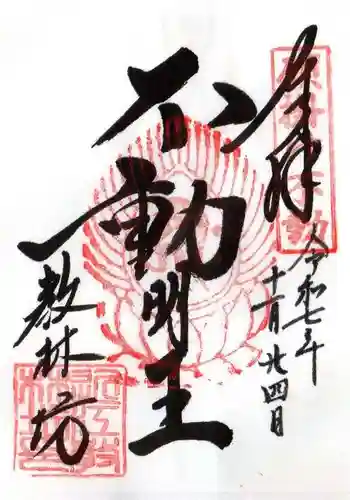 奉拝
令和七年
十一月廿四日
不動明王
教林坊